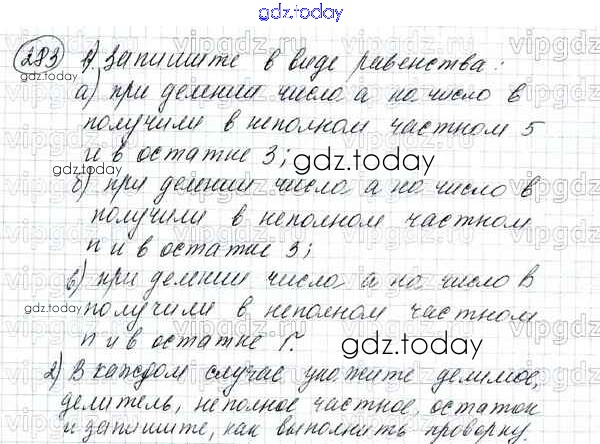 gdz.today
283 1) Запишите в виде равенства:
а) при делении числа a на число в
получили в неполном частном 5
и в остатке 3;
б) при делении числа a на число в
получили в неполном частном
n и в остатке 3;
в) при делении числа a на число в
получили в неполном частном
n и в остатке r.
2) В каждом случае укажите делимое,
делитель, неполное частное, остаток
и запишите, как выполнить проверку
gdz.today
gdz.today
gdz.today
gdz.today
gdz.today